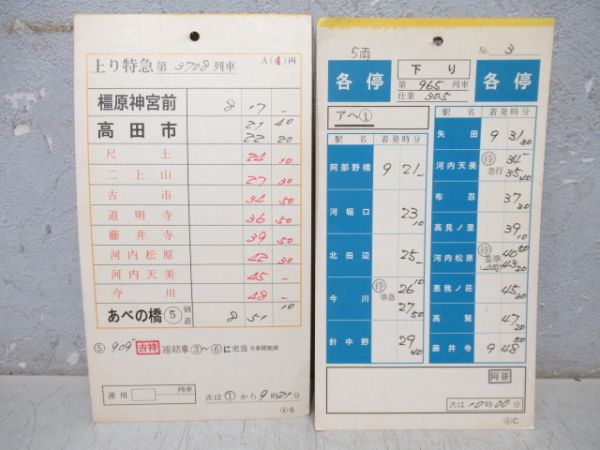 上り特急 第 3708 列車 A(4)両
橿原神宮前 8 17 -
高田市 21 40
22 20
尺土 24 10
二上山 27 30
古市 34 50
道明寺 36 50
藤井寺 39 50
河内松原 42 30
河内天美 45 -
今川 48 -
あべの橋 ⑤ 到着 8 51 10
⑤ 909" 吉特 連結車③〜⑥に充当
運用 列車 次は①から9時21分
5両 No. 3
各停 下り 各停
第 965 列車
仕業 305
アへ①
駅名 着発時分
阿部野橋 9 21 -
河堀口 23 10
北田辺 25 -
今川 待 準急 26 10
27 50
針中野 29 40
駅名 着発時分
矢田 9 31 30
河内天美 待 急行 34 -
35 40
布忍 37 30
高見ノ里 39 10
河内松原 待 40 50
43 20
恵我ノ荘 45 30
高鷲 47 20
藤井寺 9 48 50
回答
次は10時00分